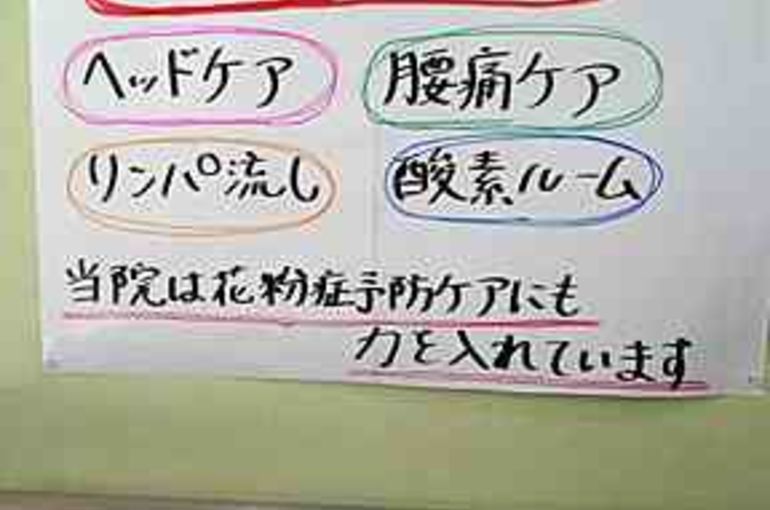 ヘッドケア 腰痛ケア
リンパ流し 酸素ルーム
当院は花粉症予防ケアにも
力を入れています